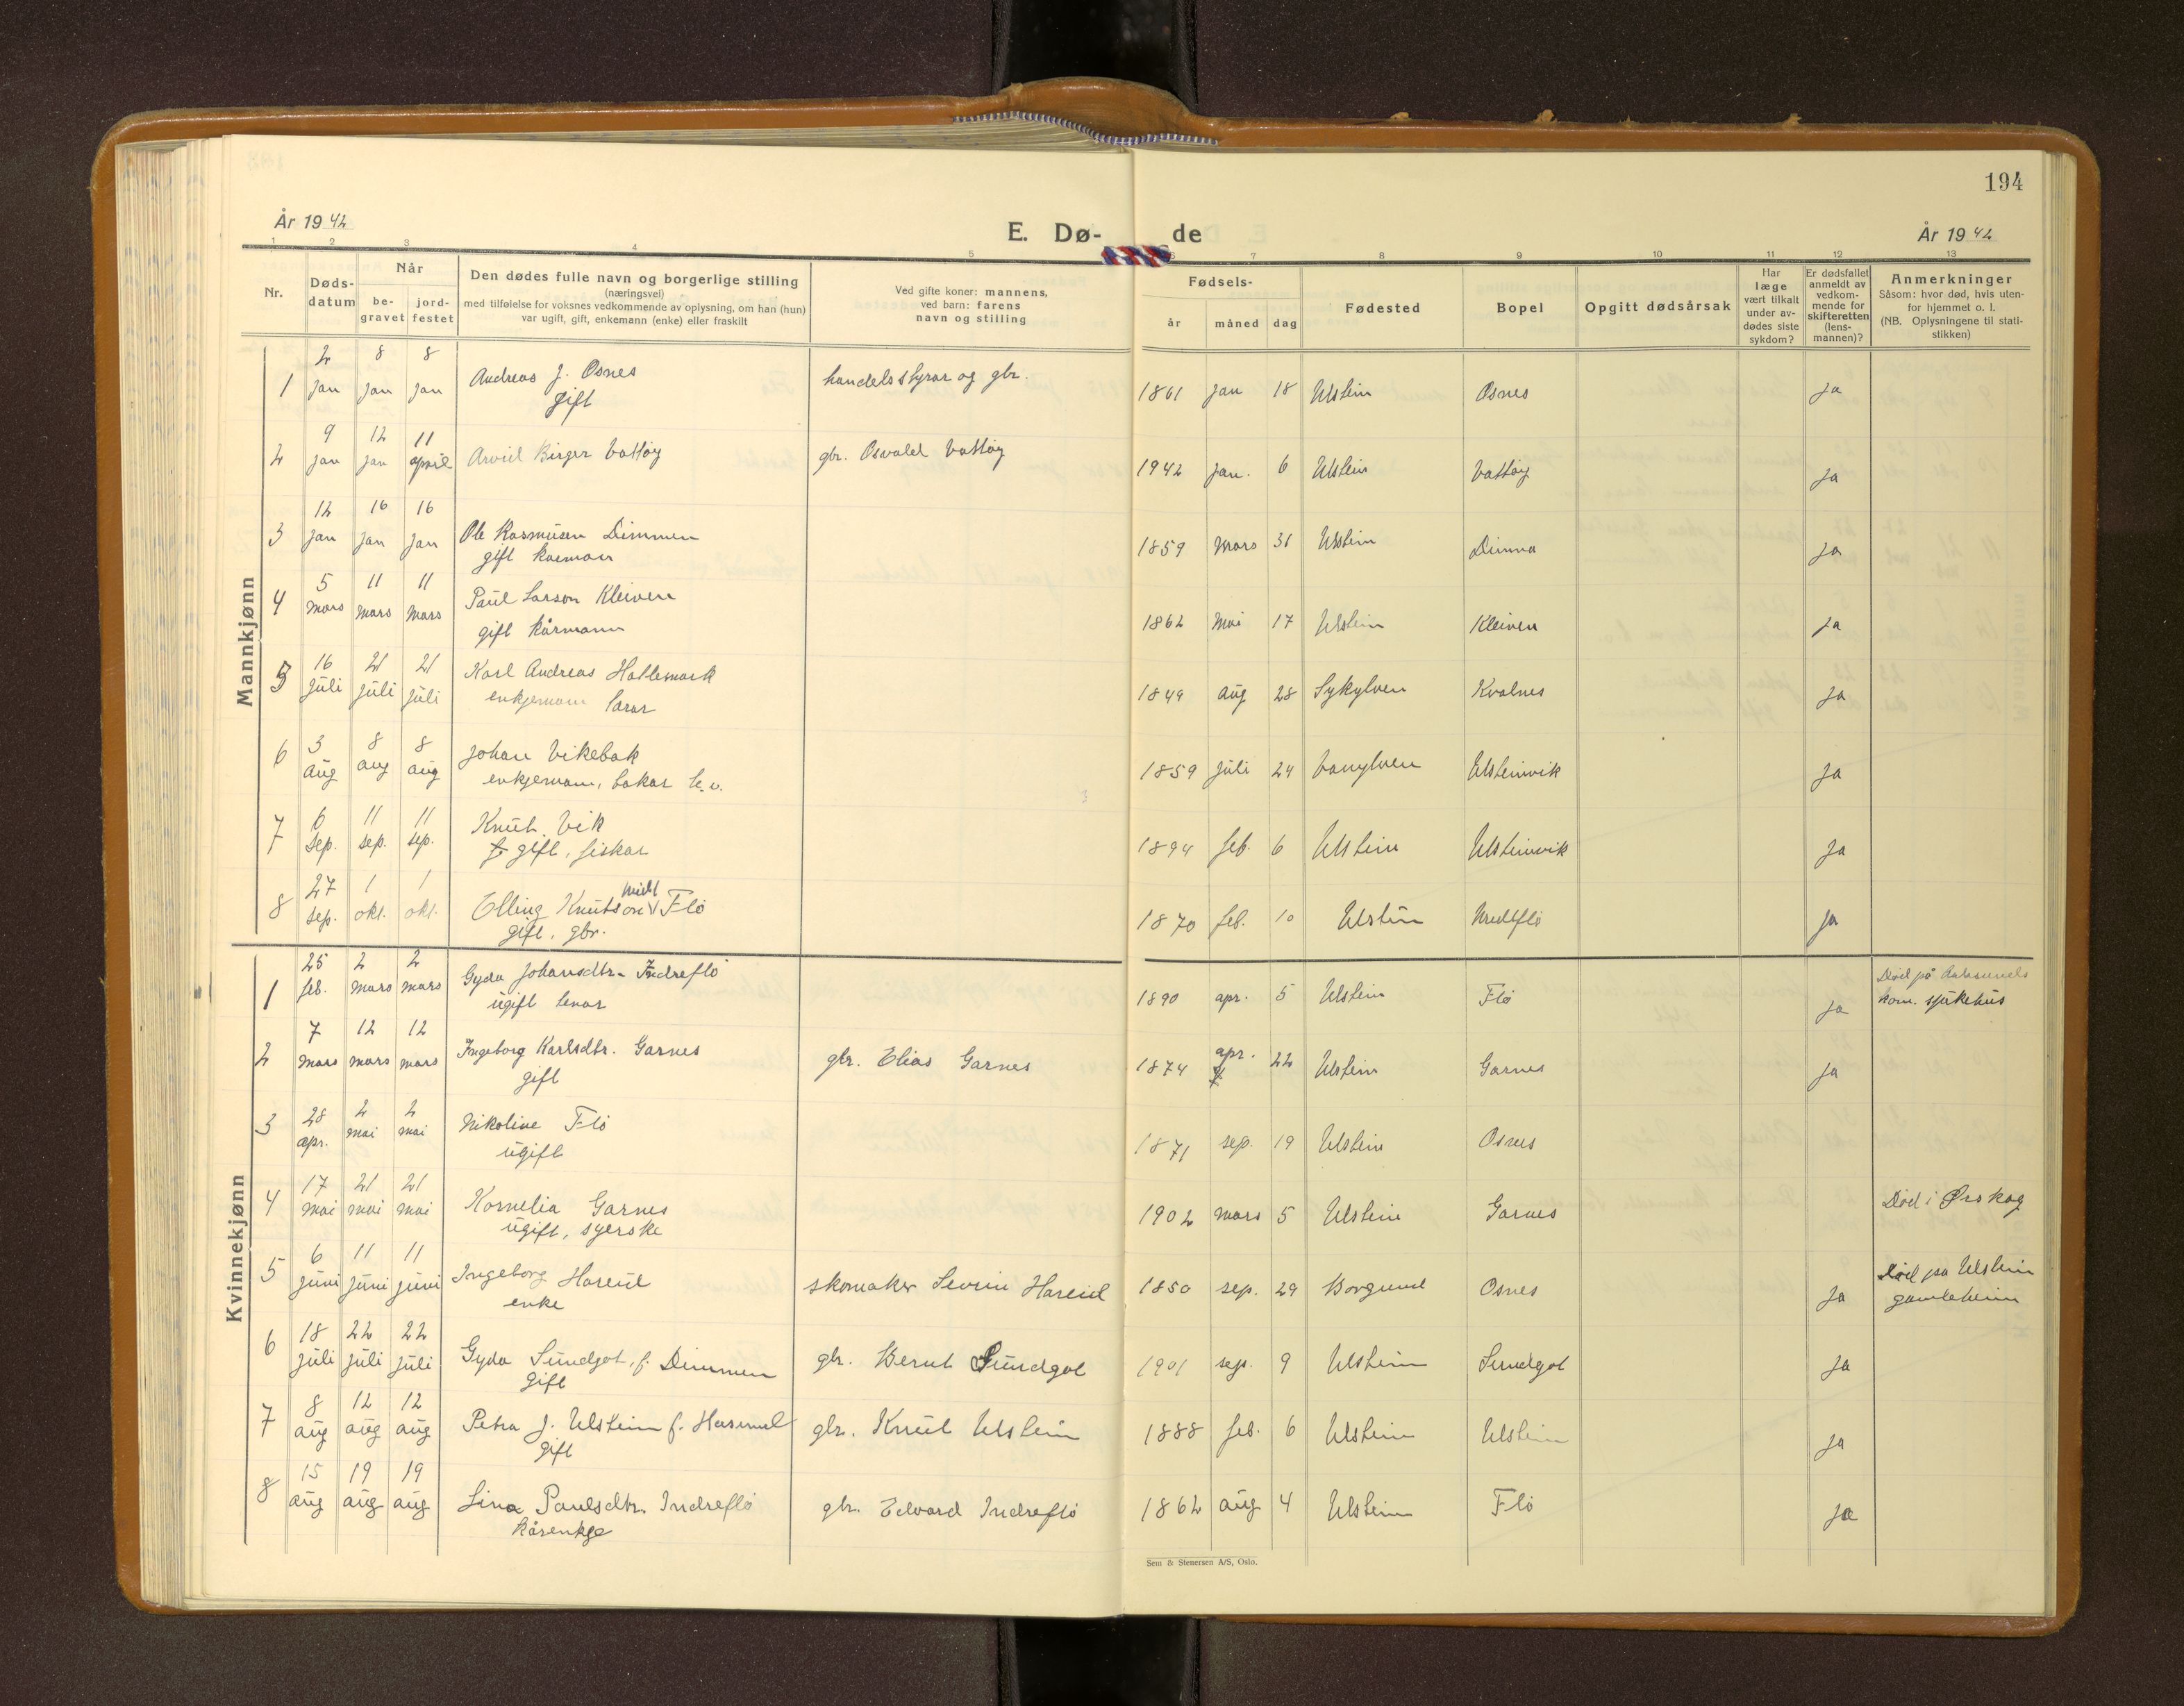 194
År 1942
E. Dø-
de
År 1942
1 2 3 4 5 6 7 8 9 10 11 12 13
Nr.
Døds-
datum
Når
be-
gravet
jord-
festet
Den dødes fulle navn og borgerlige stilling
(næringsvei)
med tilføielse for voksnes vedkommende av oplysning, om han (hun)
var ugift, gift, enkemann (enke) eller fraskilt
Ved gifte koner: mannens,
ved barn: farens
navn og stilling
Fødsels-
år måned dag
Fødested
Bopel
Opgitt dødsårsak
Har
læge
vært tilkalt
under av-
dødes siste
sykdom?
Er dødsfallet
anmeldt av
vedkom-
mende for
skifteretten
(lens-
mannen)?
Anmerkninger
Såsom: hvor død, hvis uten-
for hjemmet o. l.
(NB. Oplysningene til stati-
stikken)
Mannkjønn
2 8 8
1 jan jan jan Andreas J. Osnes handelsstyrar og gbr. 1861 jan 18 Ulstein Osnes ja
gift
9 12 11
2 jan jan april Arvid Birger Vattøy gbr. Osvald Vattøy 1942 jan. 6 Ulstein Vattøy ja
12 16 16
3 jan jan jan Ole Rasmusen Dimmen 1859 mars 31 Ulstein Dimna ja
gift kårmann
5 11 11
4 mars mars mars Paul Larson Kleiven 1862 mai 17 Ulstein Kleiven ja
gift kårmann
16 21 21
5 juli juli juli Karl Andreas Hatlemark 1849 aug 28 Sykylven Kvalnes ja
enkjemann lærar
3 8 8
6 aug aug aug Johan Vikebak 1859 juli 24 Vanylven Ulsteinvik ja
enkjemann, bakar
6 11 11
7 sep. sep. sep. Knut Vik 1894 feb. 6 Ulstein Ulsteinvik ja
gift, fiskar
27 1 1
8 sep. okt. okt. Elling Knutson Flø 1870 feb. 10 Ulstein ja
gift. gbr.
Kvinnekjønn
25 2 2
1 feb. mars mars Gyda Johansdtr. Indreflø 1890 apr. 5 Ulstein Flø ja Død på
ugift kom. sjukehus
7 12 12
2 mars mars mars Ingeborg Karlsdtr. Garnes gbr. Elias Garnes 1874 apr. 22 Ulstein Garnes ja
gift
28 2 2
3 apr. mai mai Nikoline Flø 1871 sep. 19 Ulstein Osnes
ugift
17 21 21
4 mai mai mai Kornelia Garnes 1902 mars 5 Ulstein Garnes Død i Ørskog
ugift, syerske
6 11 11
5 juni juni juni Ingeborg Hareid skomaker Severin Hareid 1850 sep. 29 Borgund Osnes ja Død på Ulstein
enke gamleheim
18 22 22
6 juli juli juli Gyda Sundgot, f. Dimmen gbr. Bernt Sundgot 1901 sep. 9 Ulstein Sundgot ja
gift
8 12 12
7 aug aug aug Petra J. Ulstein f. Hasund gbr. Knut Ulstein 1888 feb. 6 Ulstein Ulstein ja
gift
15 19 19
8 aug aug aug Lina Paulsdtr. Indreflø gbr. Edvard Indreflø 1862 aug 4 Ulstein Flø ja
kårenkje
Sem & Stenersen A/S, Oslo.